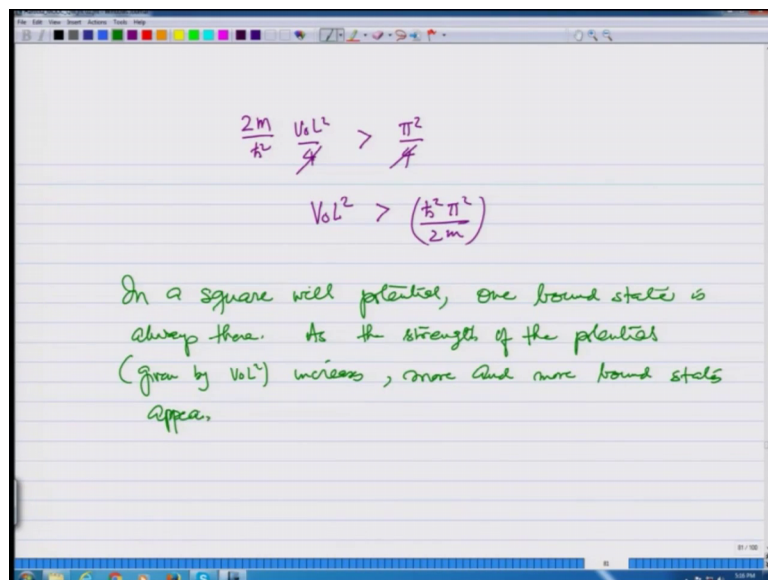 File Edit View Insert Actions Tools Help
B I
2m/ħ² V₀L²/4 > π²/4
V₀L² > (ħ²π²/2m)
In a square well potential, one bound state is
always there. As the strength of the potential
(given by V₀L²) increases, more and more bound states
appear.
81 / 100
81
5:05 PM